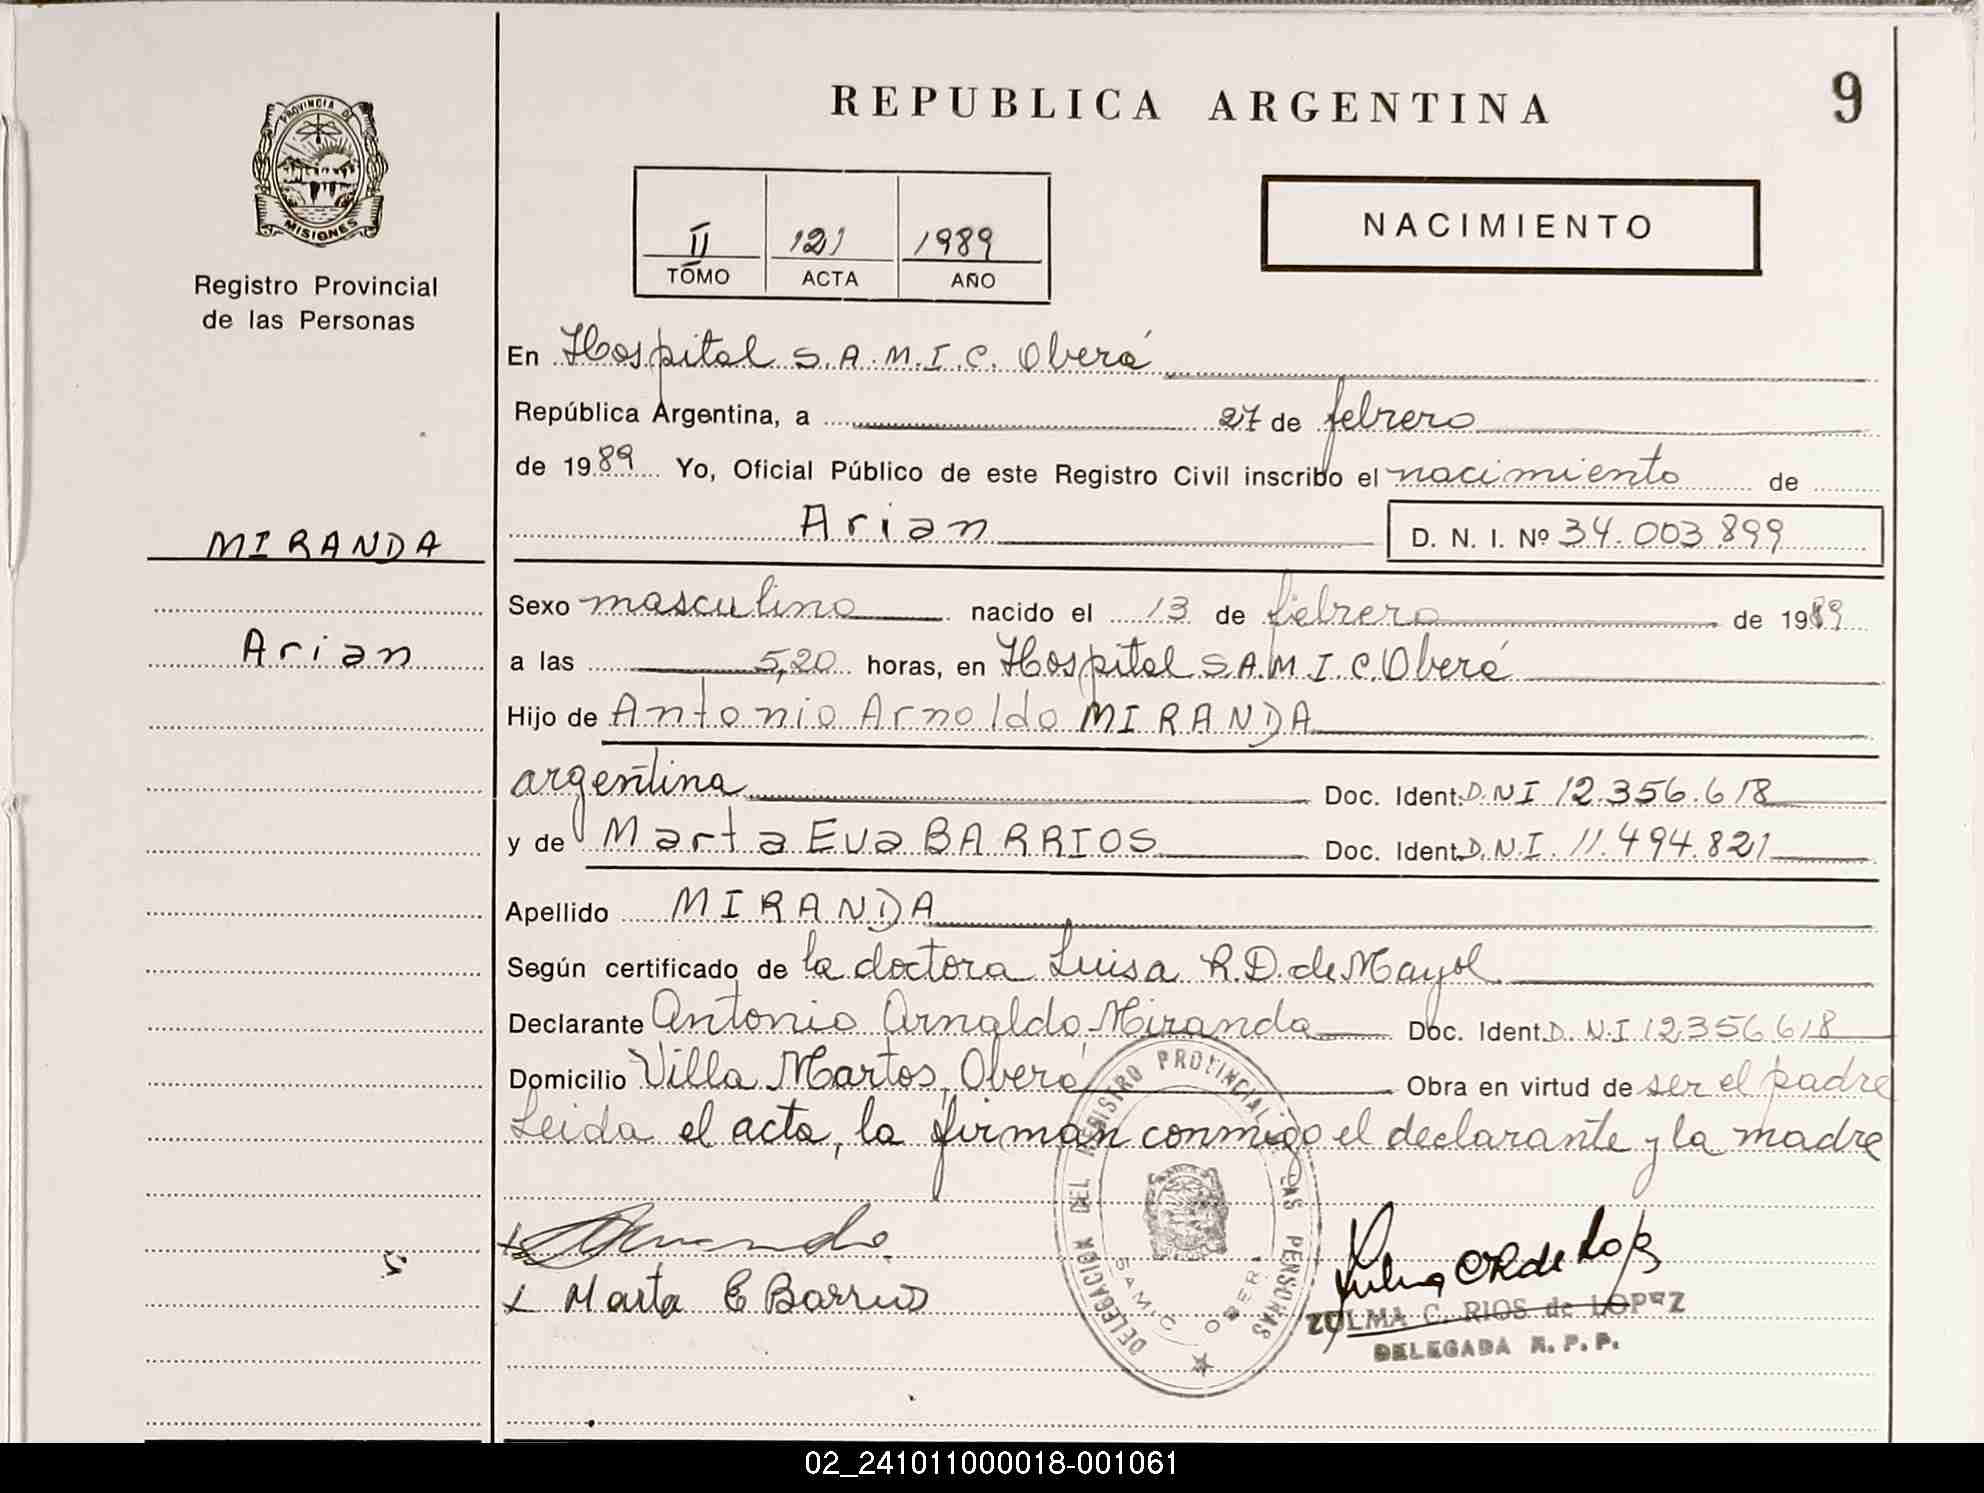 REPUBLICA ARGENTINA
9
PROVINCIA DE
MISIONES
Registro Provincial
de las Personas
II 121 1989
TOMO ACTA AÑO
NACIMIENTO
En Hospital S.A.M.I.C. Oberá
República Argentina, a 27 de febrero
de 1989 Yo, Oficial Público de este Registro Civil inscribo el nacimiento de
MIRANDA
Arian D. N. I. Nº 34.003.899
Sexo masculino nacido el 13 de febrero de 1989
Arian
a las 5,20 horas, en Hospital S.A.M.I.C. Oberá
Hijo de Antonio Arnoldo MIRANDA
argentina Doc. Ident. D.N.I 12.356.618
y de Marta Eva BARRIOS Doc. Ident. D.N.I. 11.494.821
Apellido MIRANDA
Según certificado de la doctora Luisa R.D. de Mayol
Declarante Antonio Arnaldo Miranda Doc. Ident. D.N.I 12.356.618
Domicilio Villa Martos, Oberá Obra en virtud de ser el padre
Leida el acta, la firman conmigo el declarante y la madre
DELEGACION DEL REGISTRO PROVINCIAL DE LAS PERSONAS
SAMIC OBERA
x Marta E Barrios
ZULMA C. RIOS de LOPEZ
DELEGADA R. P. P.
02_241011000018-001061